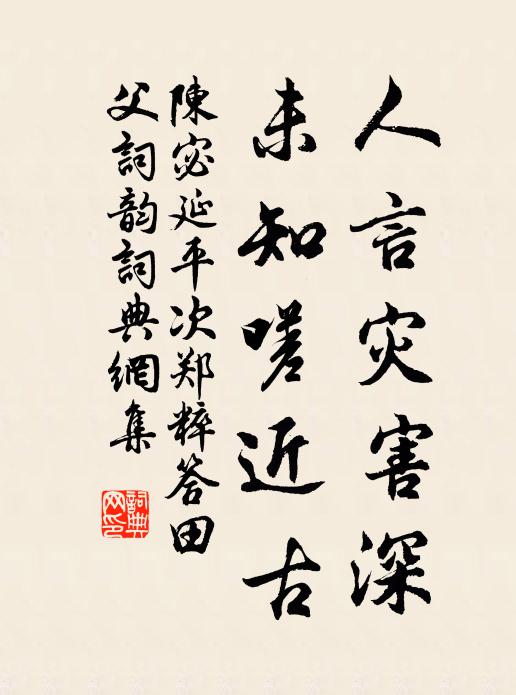 人言灾害深
未知嗟近古
陳宓延平次郑粹答田
父詞韵詞典網集
詞典
网印